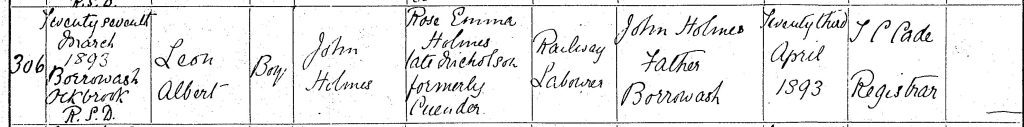 R.S.D.
306
Twenty seventh
March
1893
Borrowash
Ockbrook
R.S.D.
Leon
Albert
Boy
John
Holmes
Rose Emma
Holmes
late Nicholson
formerly
Railway
Labourer
John Holmes
Father
Borrowash
Twenty third
April
1893
Registrar